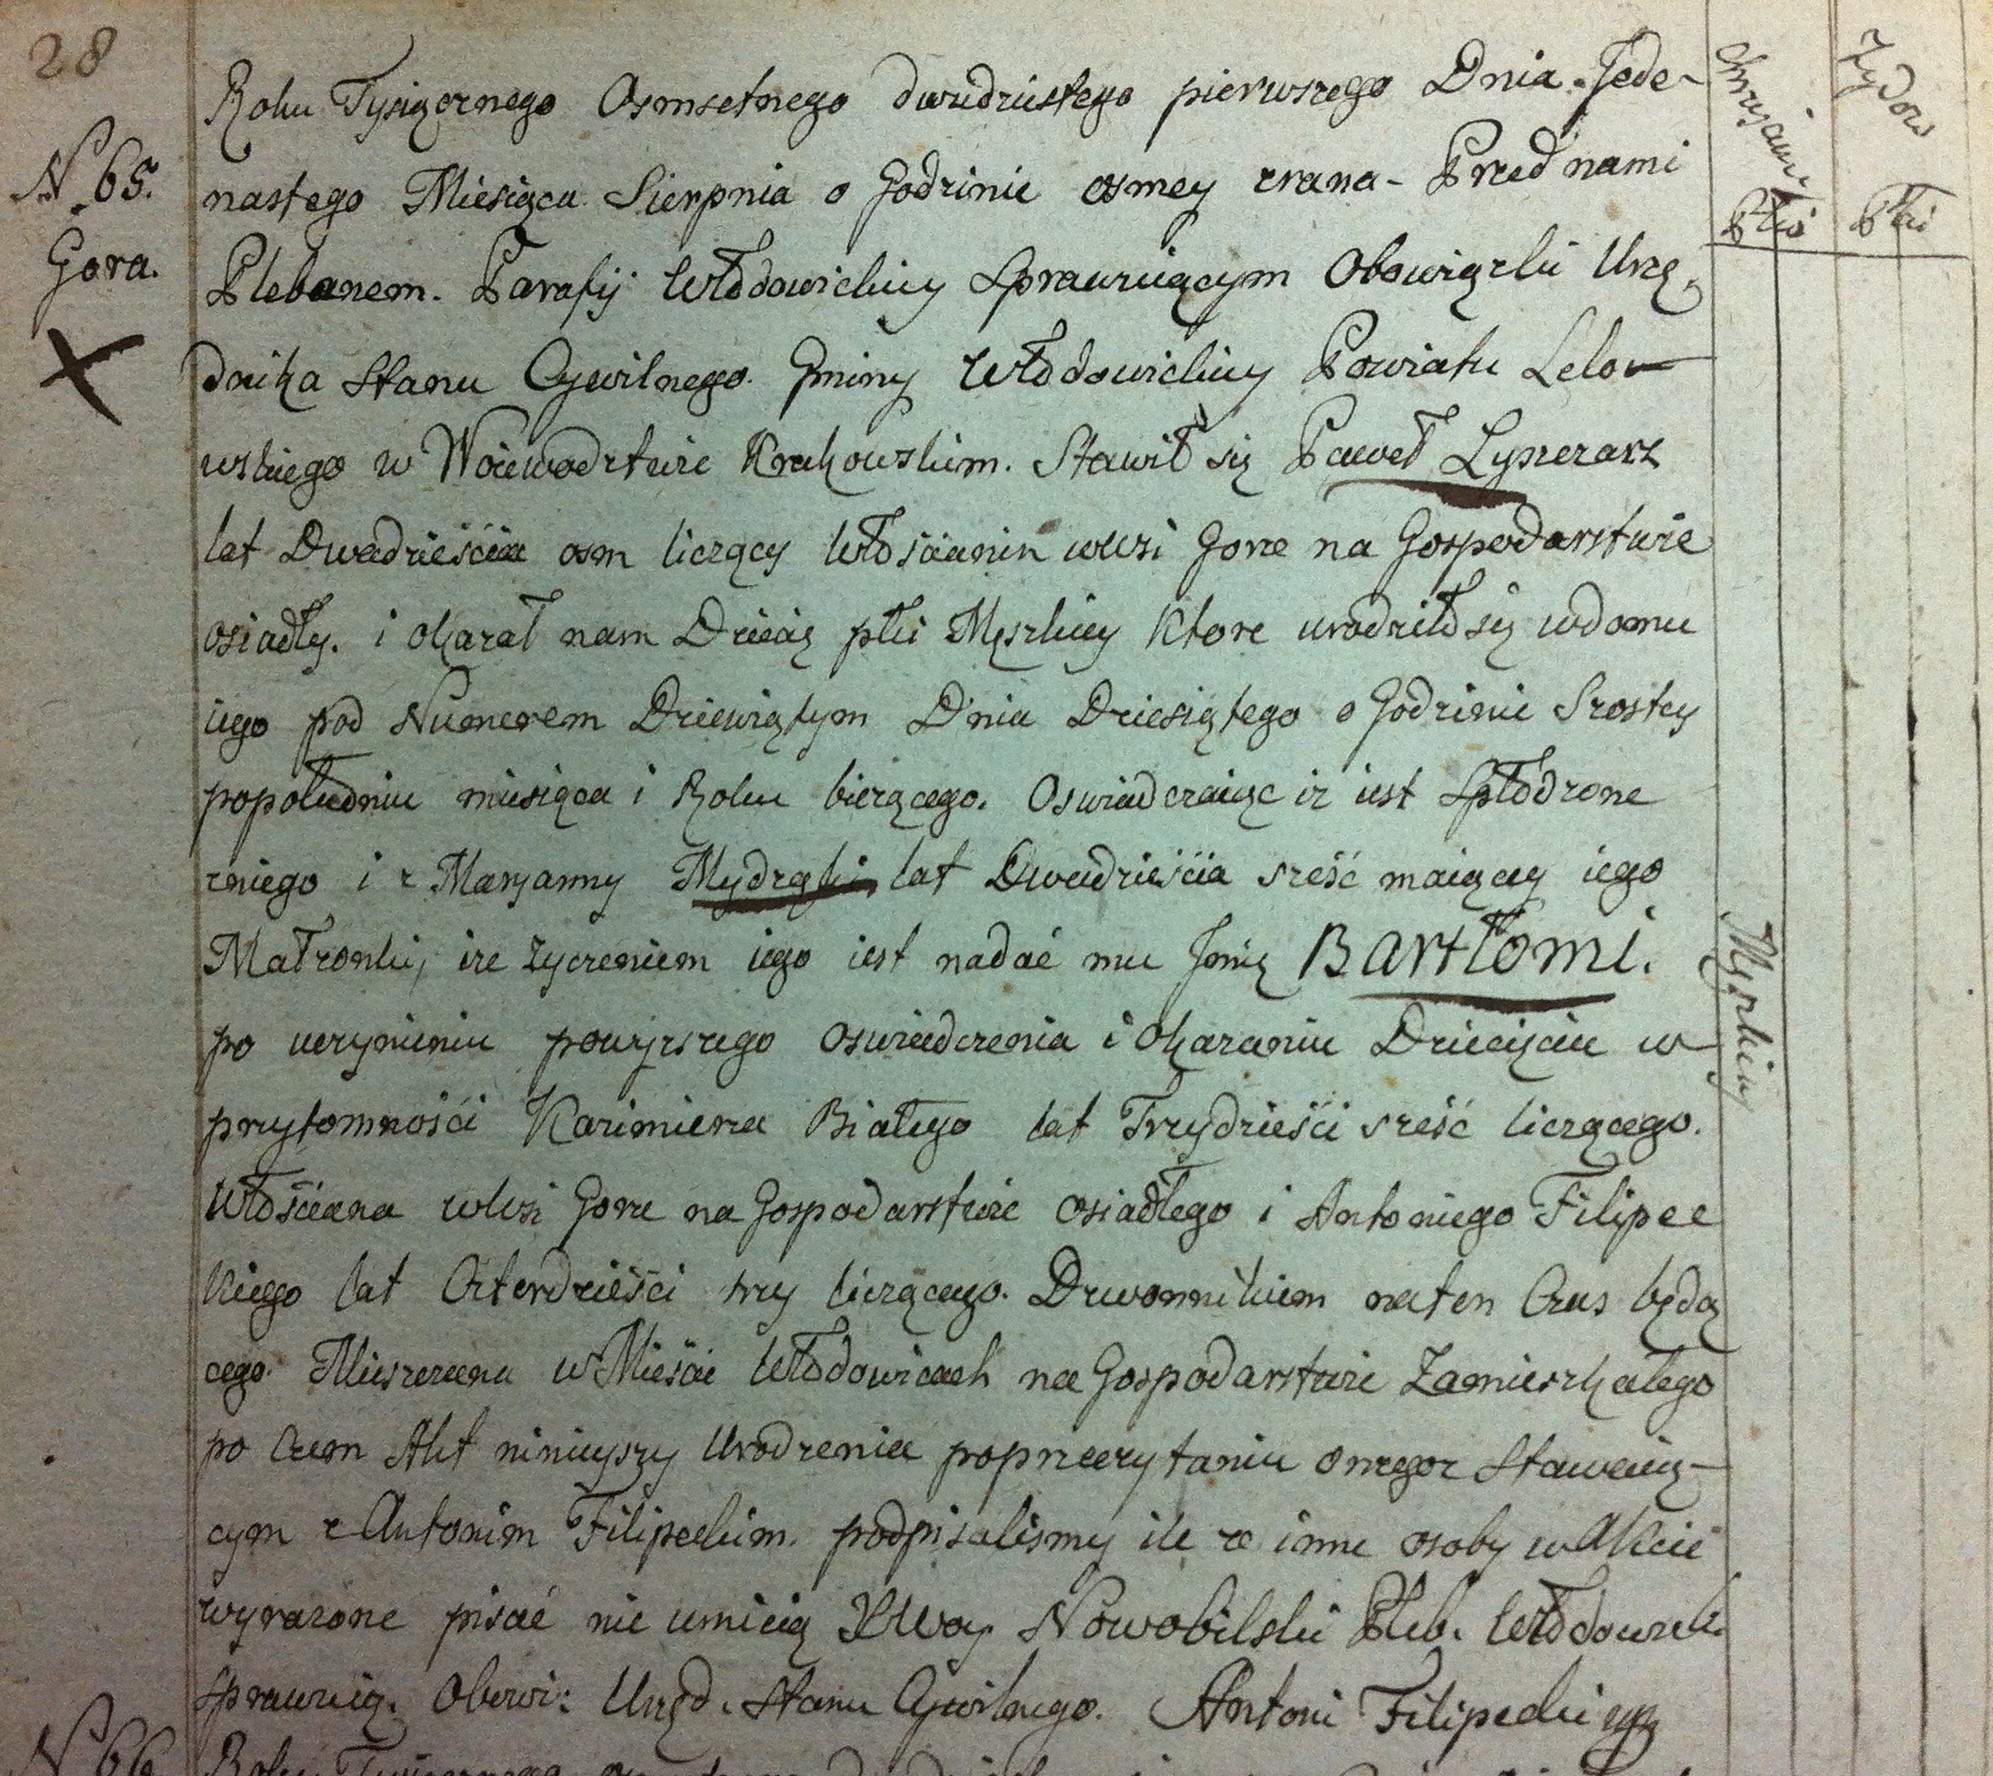 28
Roku Tysiącznego Osmsetnego dwudziestego pierwszego Dnia Jede-
N. 65.
nastego Miesiąca Sierpnia o Godzinie osmey zrana - Przed nami
Gora.
Plebanem. Parafij Włodowickiey Sprawuiącym Obowiązki Urzę-
dnika Stanu Cywilnego. Gminy Włodowickiey Powiatu Lelow
wskiego w Woiewodztwie Krakowskim. Stawił się Paweł Lynczarz
lat Dwadzieścia osm liczący Włościanin wewsi Gorze na Gospodarstwie
osiadły. i okazał nam Dziecię płci Męzkiey ktore urodziło się wdomu
iego pod Numerem Dziewiątym Dnia Dziesiątego o Godzinie Szostey
popołudniu miesiąca i Roku bieżącego. Oswiadczaiąc iz iest Spłodzone
zniego i z Maryanny lat Dwadzieścia sześć maiącey iego
Małzonki, ize zyczeniem iego iest nadać mu Jmię Bartłomi.
po uczynieniu powyzszego oswiadczenia i okazaniu Dziecięcia w
przytomności Kazimierza Białego lat Trzydzieści sześć liczącego.
Włościana wewsi Gorze na Gospodarstwie osiadłego i Antoniego Filipec
kiego lat Czterdzieści trzy liczącego. Dzwonnikiem naten Czas będą
cego. Mieszczana w Mieście Włodowicach na Gospodarstwie Zamieszkałego
po czem Akt ninieyszy Urodzenia poprzeczytaniu onegoz Stawaią-
cym z Antonim Filipeckim. podpisalismy ile ze inne osoby w Akcie
wyrazone pisać nie umieią Nowobilski Pleb. Włodowick.
Sprawuią. Obowi: Urzęd. Stanu Cywilnego. Antoni Filipecki
N 66
Roku Tysiącznego
Chrzescian
Płeć
Zydow
Płeć
Męzkiey